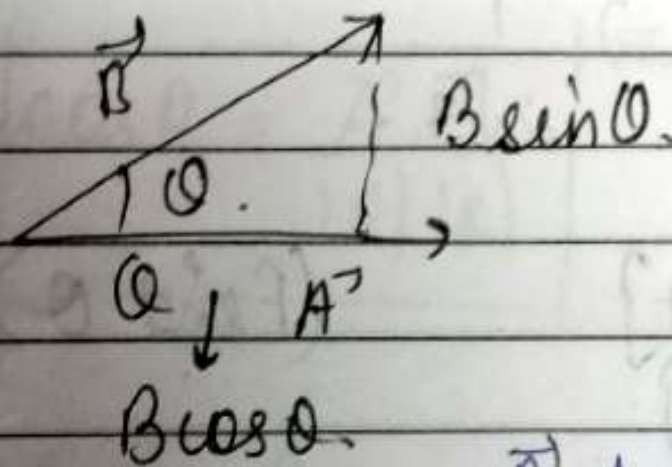 B⃗
B sinθ
θ
θ A⃗
B cosθ